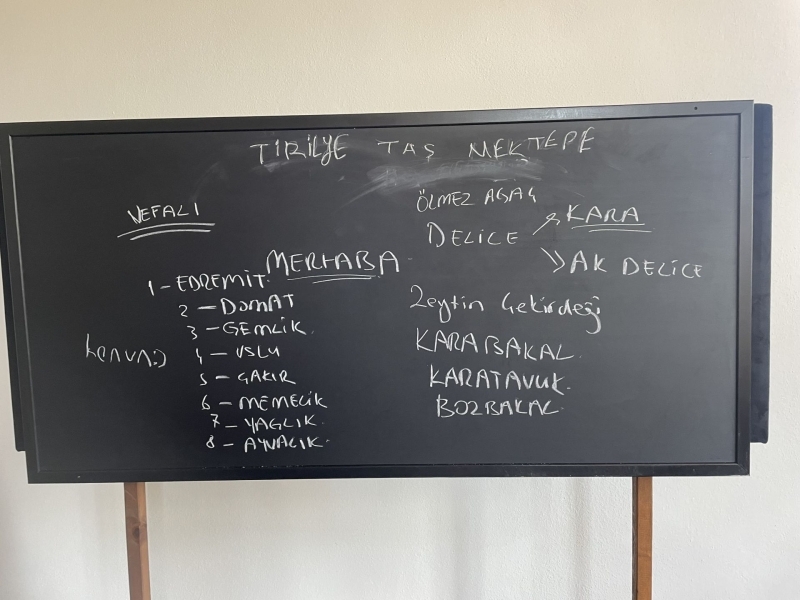 TIRILYE TAŞ MEKTEPE
VEFALI
MERHABA
1 - EDREMİT.
2 - DOMAT
3 - GEMLİK.
4 - USLU
5 - ÇAKIR
6 - MEMELİK
7 - YAĞLIK.
8 - AYVALIK.
ÖLMEZ AĞAÇ
DELİCE
KARA
AK DELİCE
Zeytin Çekirdeği
KARABAKAL.
KARATAVUK.
BOZBAKAL.